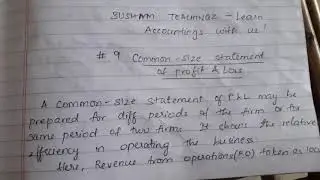 SUSHANT TEACHINGZ - Learn
Accountings with us!
# 9 Common-size statement
of profit & Loss
A common-size statement of P&L may be
prepared for diff periods of the firm or for
same period of two firms. It shows the relative
efficiency in operating the business
Here, Revenue from operations (RO) taken as 100